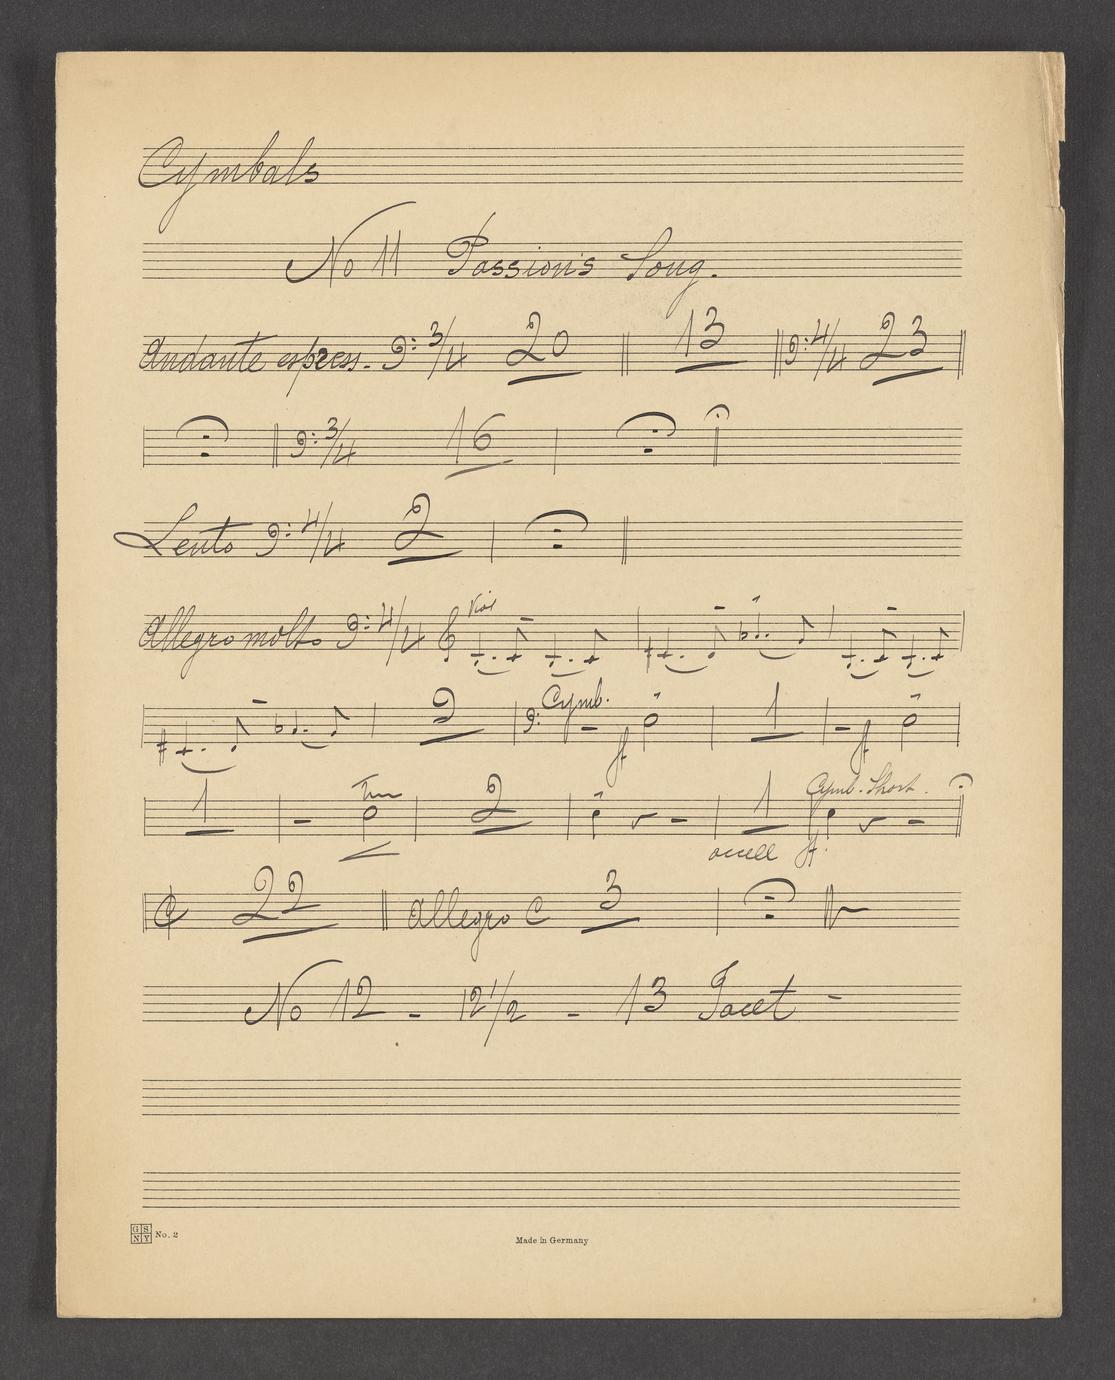 Cymbals
No 11 Passion's Song.
Andante espress. 3/4 20 13 4/4 23
3/4 16
Lento 4/4 2
Allegro molto 4/4 Viol
2 Cymb. ff 1 ff
1 2 1 Cymb. Short.
accell ff.
22 Allegro C 3
No 12 - 12 1/2 - 13 Tacet -
GS NY No. 2
Made in Germany